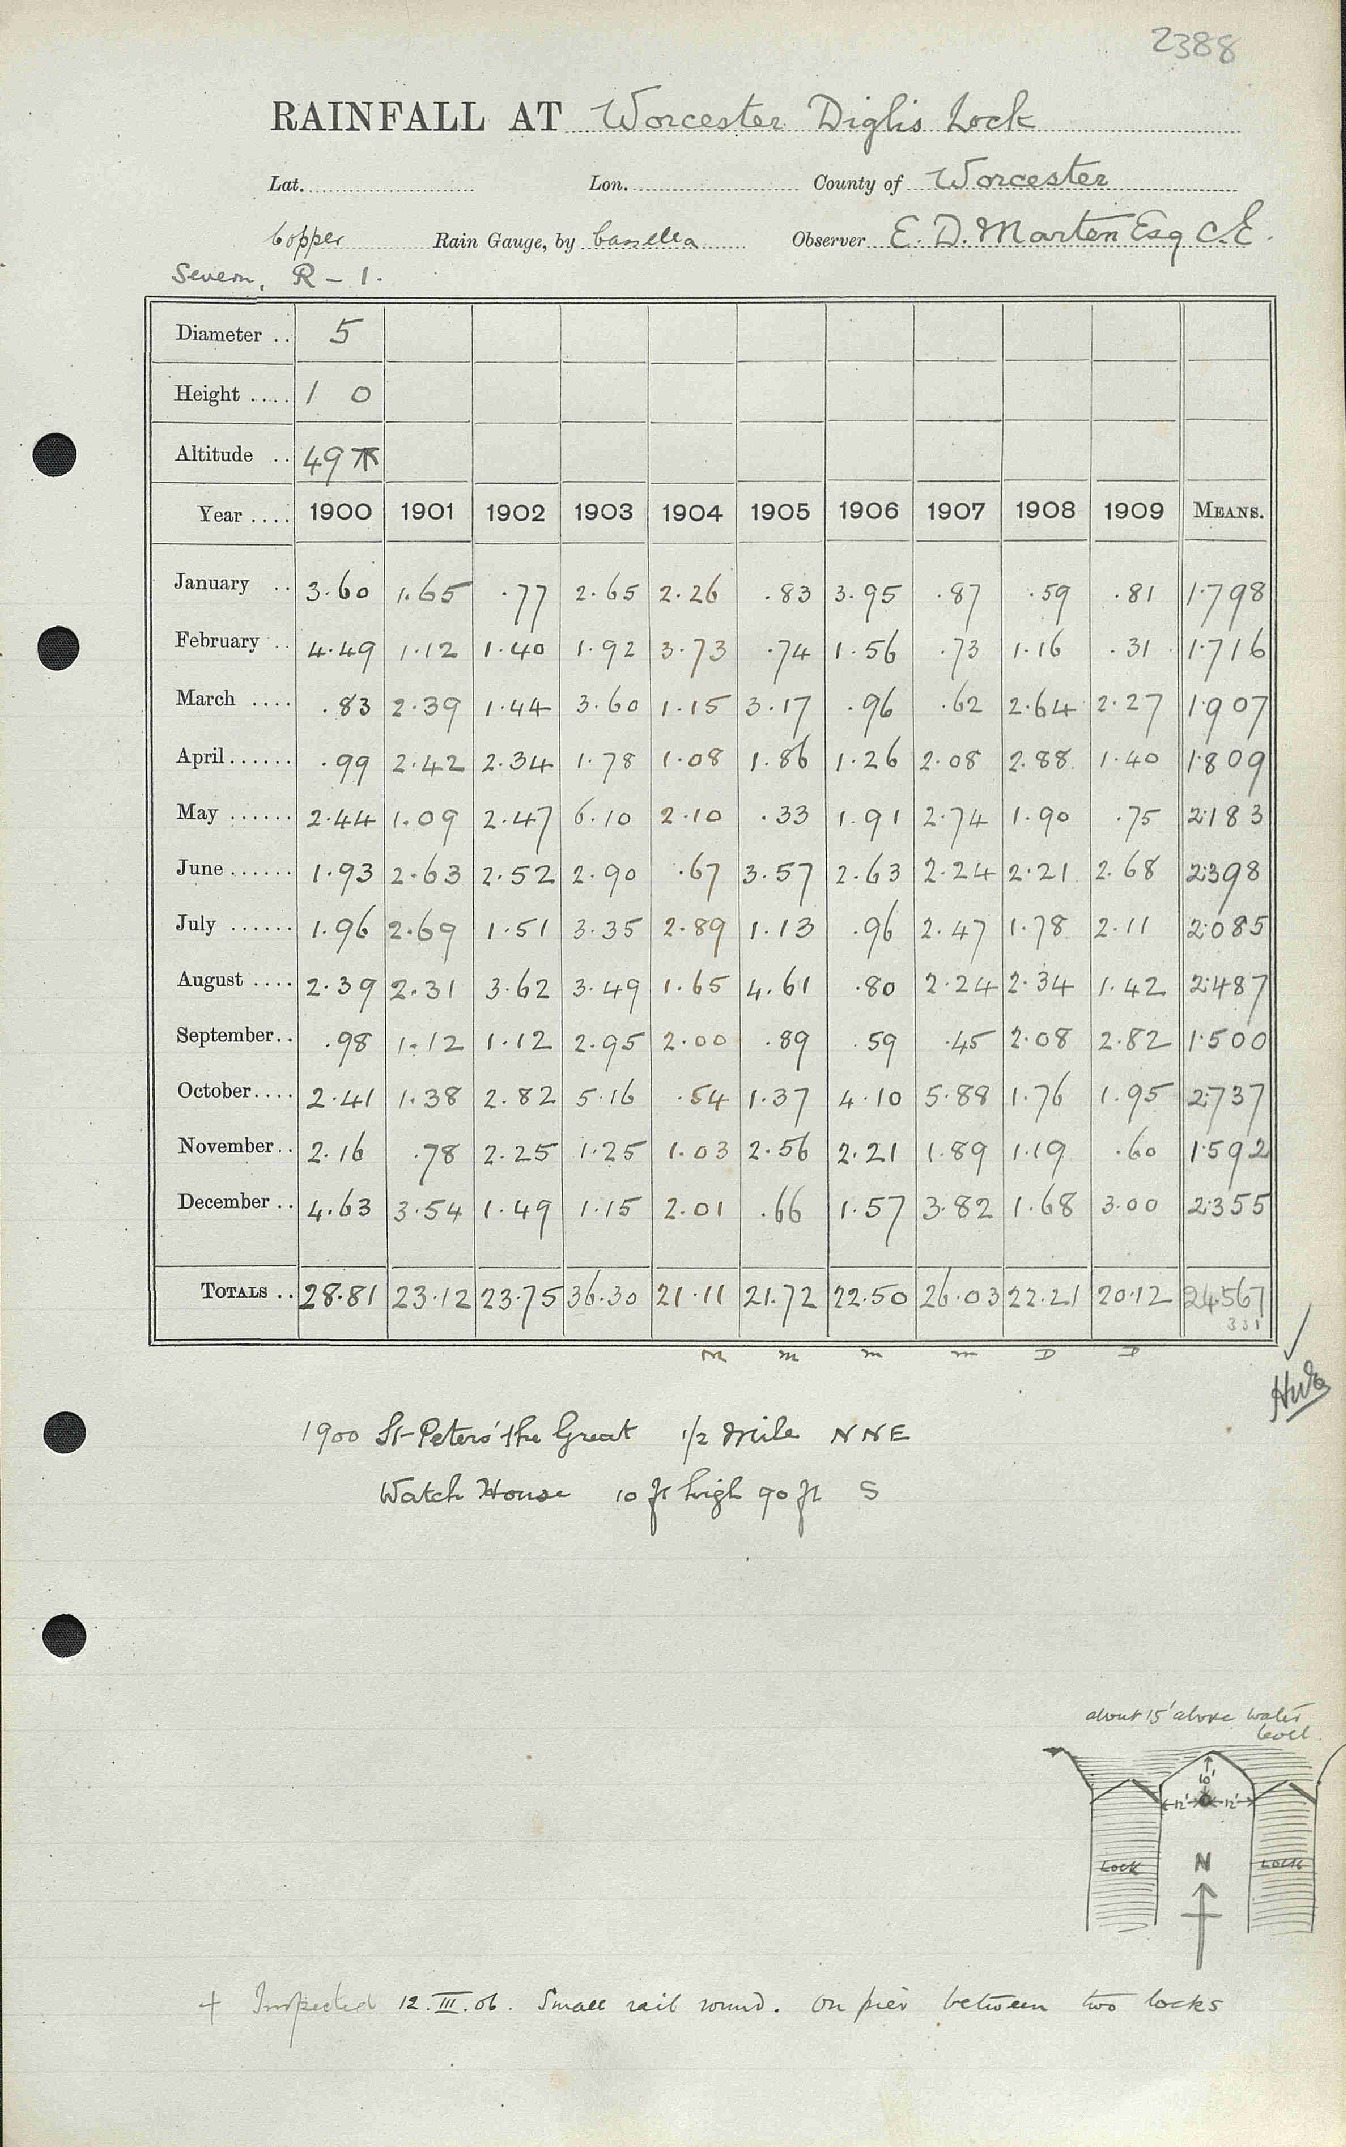 2388
RAINFALL AT Worcester Diglis Lock
Lat. Lon. County of Worcester
Copper Rain Gauge, by Casella Observer E. D. Marten Esq C.E.
Severn, R - 1.
Diameter .. 5
Height .... 1 0
Altitude .. 49
Year .... 1900 1901 1902 1903 1904 1905 1906 1907 1908 1909 MEANS.
January .. 3.60 1.65 .77 2.65 2.26 .83 3.95 .87 .59 .81 1.798
February .. 4.49 1.12 1.40 1.92 3.73 .74 1.56 .73 1.16 .31 1.716
March .... .83 2.39 1.44 3.60 1.15 3.17 .96 .62 2.64 2.27 1.907
April ...... .99 2.42 2.34 1.78 1.08 1.86 1.26 2.08 2.88 1.40 1.809
May ...... 2.44 1.09 2.47 6.10 2.10 .33 1.91 2.74 1.90 .75 2.183
June ...... 1.93 2.63 2.52 2.90 .67 3.57 2.63 2.24 2.21 2.68 2.398
July ...... 1.96 2.69 1.51 3.35 2.89 1.13 .96 2.47 1.78 2.11 2.085
August .... 2.39 2.31 3.62 3.49 1.65 4.61 .80 2.24 2.34 1.42 2.487
September .. .98 1.12 1.12 2.95 2.00 .89 .59 .45 2.08 2.82 1.500
October .... 2.41 1.38 2.82 5.16 .54 1.37 4.10 5.88 1.76 1.95 2.737
November .. 2.16 .78 2.25 1.25 1.03 2.56 2.21 1.89 1.19 .60 1.592
December .. 4.63 3.54 1.49 1.15 2.01 .66 1.57 3.82 1.68 3.00 2.355
TOTALS .. 28.81 23.12 23.75 36.30 21.11 21.72 22.50 26.03 22.21 20.12 24.567
331
M M M M D D
1900 St Peters' the Great 1/2 Mile NNE
Watch House 10 ft high 90 ft S
about 15' above water
level
10'
12' 12'
Lock N Lock
+ Inspected 12.III.06. Small rail round. On pier between two locks